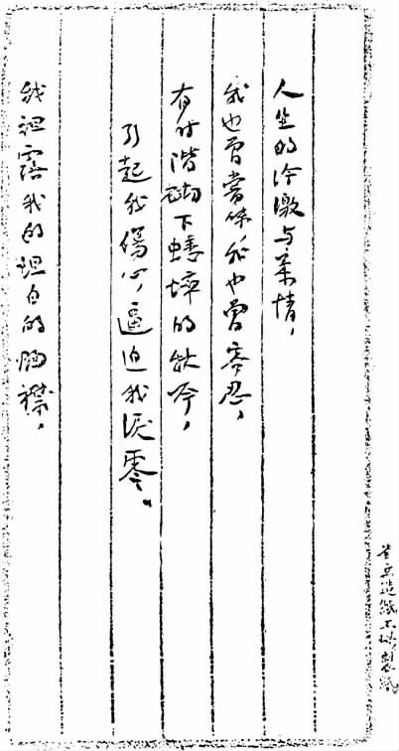 人生的冷激与柔情，
我也曾嘗味，我也曾容忍，
有时階砌下蟋蟀的秋吟，
引起我傷心，逼迫我淚零。
我袒露我的坦白的胸襟，
造紙